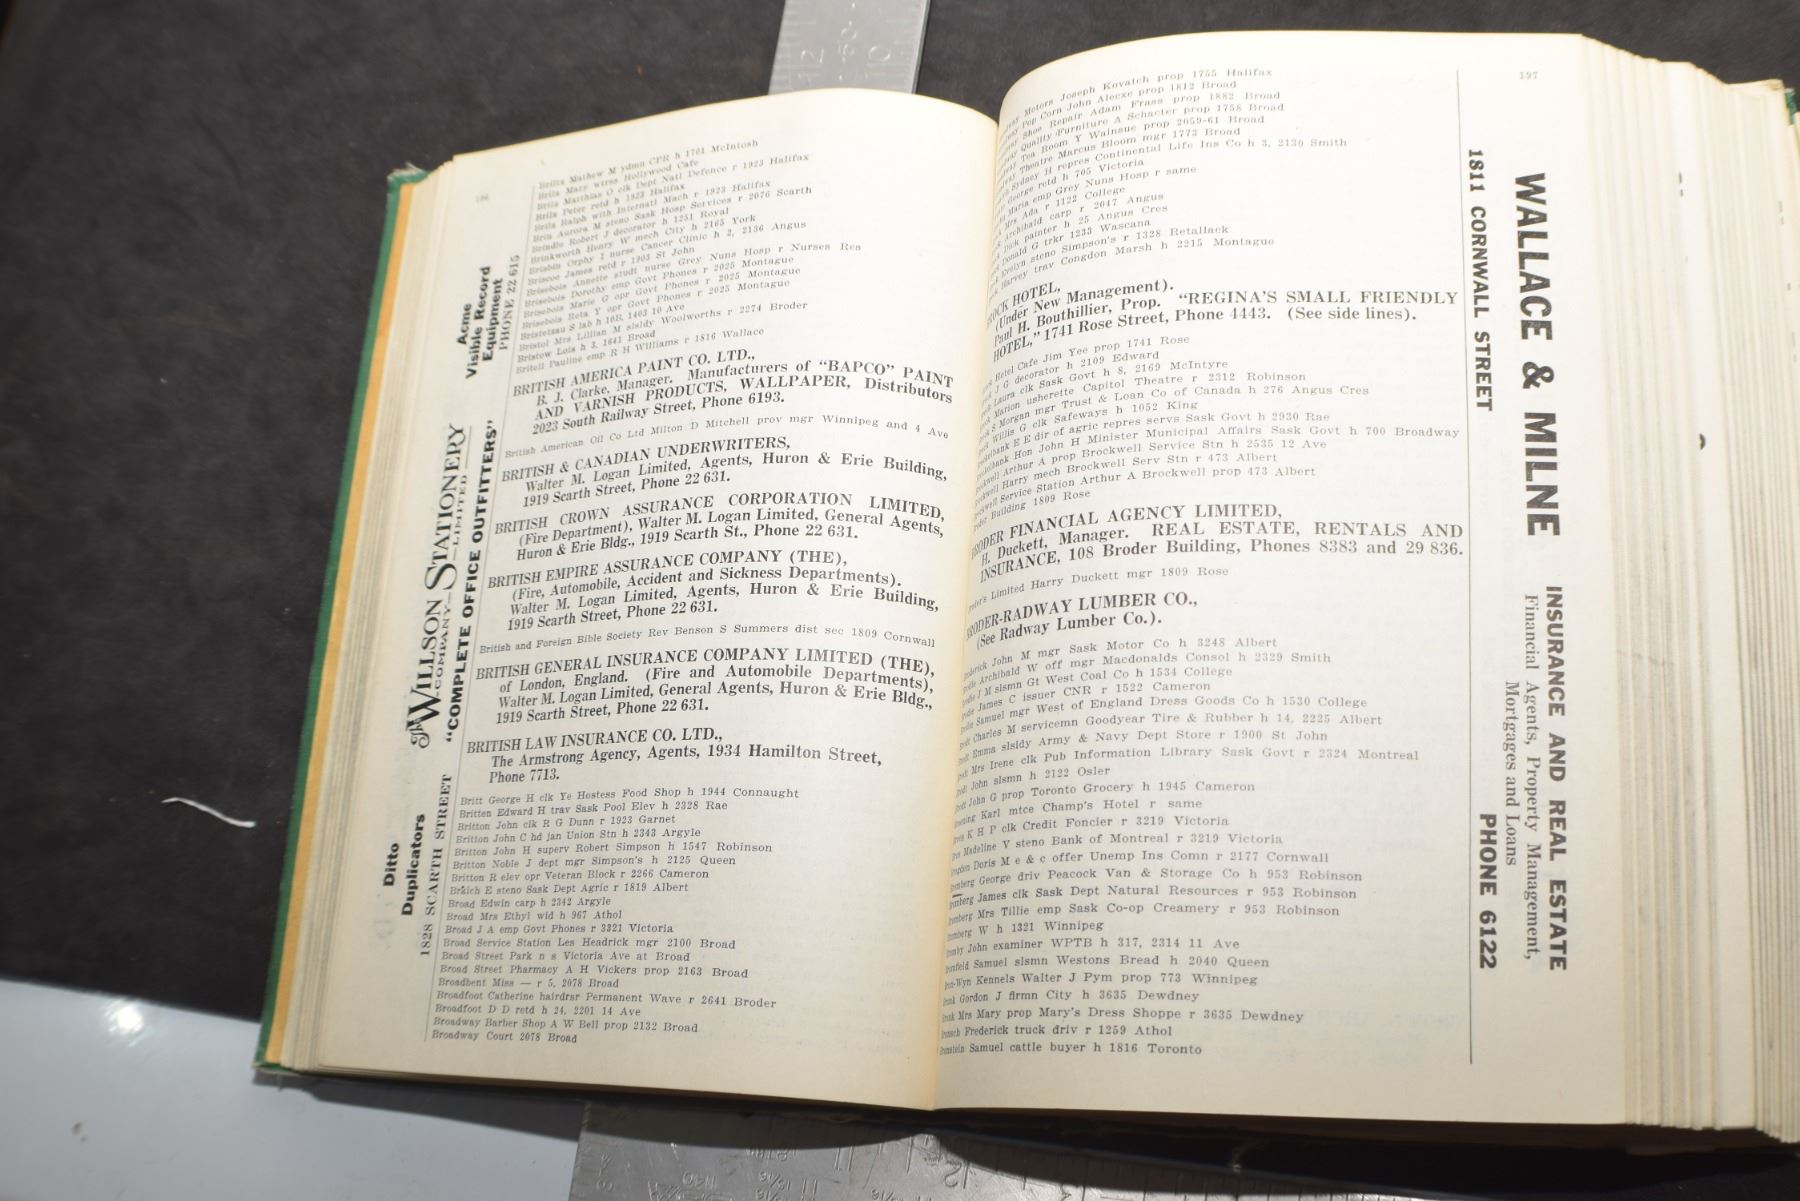 196
Acme
Visible Record
Equipment
PHONE 22 615
The WILLSON STATIONERY
COMPANY LIMITED
"COMPLETE OFFICE OUTFITTERS"
Ditto
Duplicators
1828 SCARTH STREET
Brilz Mathew M ydmn CPR h 1701 McIntosh
Brilz Mary wtres Hollywood Cafe
Brilz Matthias O clk Dept Natl Defence r 1923 Halifax
Brilz Peter retd h 1923 Halifax
Brilz Ralph with Internatl Mach r 1923 Halifax
Brin Aurora M steno Sask Hosp Services r 2076 Scarth
Brindle Robert J decorator h 1251 Royal
Brinkworth Henry W mech City h 2165 York
Brisbin Orphy I nurse Cancer Clinic h 2, 2136 Angus
Briscoe James retd r 1903 St John
Brisebois Annette studt nurse Grey Nuns Hosp r Nurses Res
Brisebois Dorothy emp Govt Phones r 2025 Montague
Brisebois Marie G opr Govt Phones r 2025 Montague
Brisebois Reta Y opr Govt Phones r 2025 Montague
Bristetzau S lab h 10B, 1403 10 Ave
Bristol Mrs Lillian M slsldy Woolworths r 2274 Broder
Bristow Lois h 3, 1641 Broad
Britell Pauline emp R H Williams r 1816 Wallace
BRITISH AMERICA PAINT CO. LTD.,
B. J. Clarke, Manager. Manufacturers of "BAPCO" PAINT
AND VARNISH PRODUCTS, WALLPAPER, Distributors
2023 South Railway Street, Phone 6193.
British American Oil Co Ltd Milton D Mitchell prov mgr Winnipeg and 4 Ave
BRITISH & CANADIAN UNDERWRITERS,
Walter M. Logan Limited, Agents, Huron & Erie Building,
1919 Scarth Street, Phone 22 631.
BRITISH CROWN ASSURANCE CORPORATION LIMITED,
(Fire Department), Walter M. Logan Limited, General Agents,
Huron & Erie Bldg., 1919 Scarth St., Phone 22 631.
BRITISH EMPIRE ASSURANCE COMPANY (THE),
(Fire, Automobile, Accident and Sickness Departments).
Walter M. Logan Limited, Agents, Huron & Erie Building,
1919 Scarth Street, Phone 22 631.
British and Foreign Bible Society Rev Benson S Summers dist sec 1809 Cornwall
BRITISH GENERAL INSURANCE COMPANY LIMITED (THE),
of London, England. (Fire and Automobile Departments),
Walter M. Logan Limited, General Agents, Huron & Erie Bldg.,
1919 Scarth Street, Phone 22 631.
BRITISH LAW INSURANCE CO. LTD.,
The Armstrong Agency, Agents, 1934 Hamilton Street,
Phone 7713.
Britt George H clk Ye Hostess Food Shop h 1944 Connaught
Britten Edward H trav Sask Pool Elev h 2328 Rae
Britton John clk R G Dunn r 1923 Garnet
Britton John C hd jan Union Stn h 2343 Argyle
Britton John H superv Robert Simpson h 1547 Robinson
Britton Noble J dept mgr Simpson's h 2125 Queen
Britton R elev opr Veteran Block r 2266 Cameron
E steno Sask Dept Agric r 1819 Albert
Broad Edwin carp h 2342 Argyle
Broad Mrs Ethyl wid h 967 Athol
Broad J A emp Govt Phones r 3321 Victoria
Broad Service Station Les Headrick mgr 2100 Broad
Broad Street Park n s Victoria Ave at Broad
Broad Street Pharmacy A H Vickers prop 2163 Broad
Broadbent Miss — r 5, 2078 Broad
Broadfoot Catherine hairdrsr Permanent Wave r 2641 Broder
Broadfoot D D retd h 24, 2201 14 Ave
Broadway Barber Shop A W Bell prop 2132 Broad
Broadway Court 2078 Broad
197
Motors Joseph Kovatch prop 1755 Halifax
Pop Corn John Alecxe prop 1812 Broad
Shoe Repair Adam Frass prop 1882 Broad
Quality Furniture A Schacter prop 1758 Broad
Tea Room Y Wainsue prop 2059-61 Broad
Theatre Marcus Bloom mgr 1773 Broad
Sydney H repres Continental Life Ins Co h 3, 2130 Smith
George retd h 705 Victoria
Maria emp Grey Nuns Hosp r same
Mrs Ada r 1122 College
Archibald carp r 2047 Angus
Dick painter h 25 Angus Cres
Donald G trkr 1233 Wascana
Evelyn steno Simpson's r 1328 Retallack
Harvey trav Congdon Marsh h 2215 Montague
HOTEL,
(Under New Management).
Paul H. Bouthillier, Prop. "REGINA'S SMALL FRIENDLY
HOTEL," 1741 Rose Street, Phone 4443. (See side lines).
Hotel Cafe Jim Yee prop 1741 Rose
J G decorator h 2109 Edward
Laura clk Sask Govt h 8, 2169 McIntyre
Marion usherette Capitol Theatre r 2312 Robinson
S Morgan mgr Trust & Loan Co of Canada h 276 Angus Cres
Willis G clk Safeways h 1052 King
E E dir of agric repres servs Sask Govt h 2930 Rae
Hon John H Minister Municipal Affairs Sask Govt h 700 Broadway
Arthur A prop Brockwell Service Stn h 2535 12 Ave
Harry mech Brockwell Serv Stn r 473 Albert
Service Station Arthur A Brockwell prop 473 Albert
Building 1809 Rose
BRODER FINANCIAL AGENCY LIMITED,
H. Duckett, Manager. REAL ESTATE, RENTALS AND
INSURANCE, 108 Broder Building, Phones 8383 and 29 836.
Limited Harry Duckett mgr 1809 Rose
BRODER-RADWAY LUMBER CO.,
(See Radway Lumber Co.).
John M mgr Sask Motor Co h 3248 Albert
Archibald W off mgr Macdonalds Consol h 2329 Smith
J M slsmn Gt West Coal Co h 1534 College
James C issuer CNR r 1522 Cameron
Samuel mgr West of England Dress Goods Co h 1530 College
Charles M servicemn Goodyear Tire & Rubber h 14, 2225 Albert
Emma slsldy Army & Navy Dept Store r 1900 St John
Mrs Irene clk Pub Information Library Sask Govt r 2324 Montreal
John slsmn h 2122 Osler
John G prop Toronto Grocery h 1945 Cameron
Karl mtce Champ's Hotel r same
K H P clk Credit Foncier r 3219 Victoria
Madeline V steno Bank of Montreal r 3219 Victoria
Doris M e & c offer Unemp Ins Comn r 2177 Cornwall
George driv Peacock Van & Storage Co h 953 Robinson
James clk Sask Dept Natural Resources r 953 Robinson
Mrs Tillie emp Sask Co-op Creamery r 953 Robinson
W h 1321 Winnipeg
John examiner WPTB h 317, 2314 11 Ave
Samuel slsmn Westons Bread h 2040 Queen
Kennels Walter J Pym prop 773 Winnipeg
Gordon J firmn City h 3635 Dewdney
Mrs Mary prop Mary's Dress Shoppe r 3635 Dewdney
Frederick truck driv r 1259 Athol
Samuel cattle buyer h 1816 Toronto
WALLACE & MILNE
1811 CORNWALL STREET
INSURANCE AND REAL ESTATE
Financial Agents, Property Management,
Mortgages and Loans
PHONE 6122